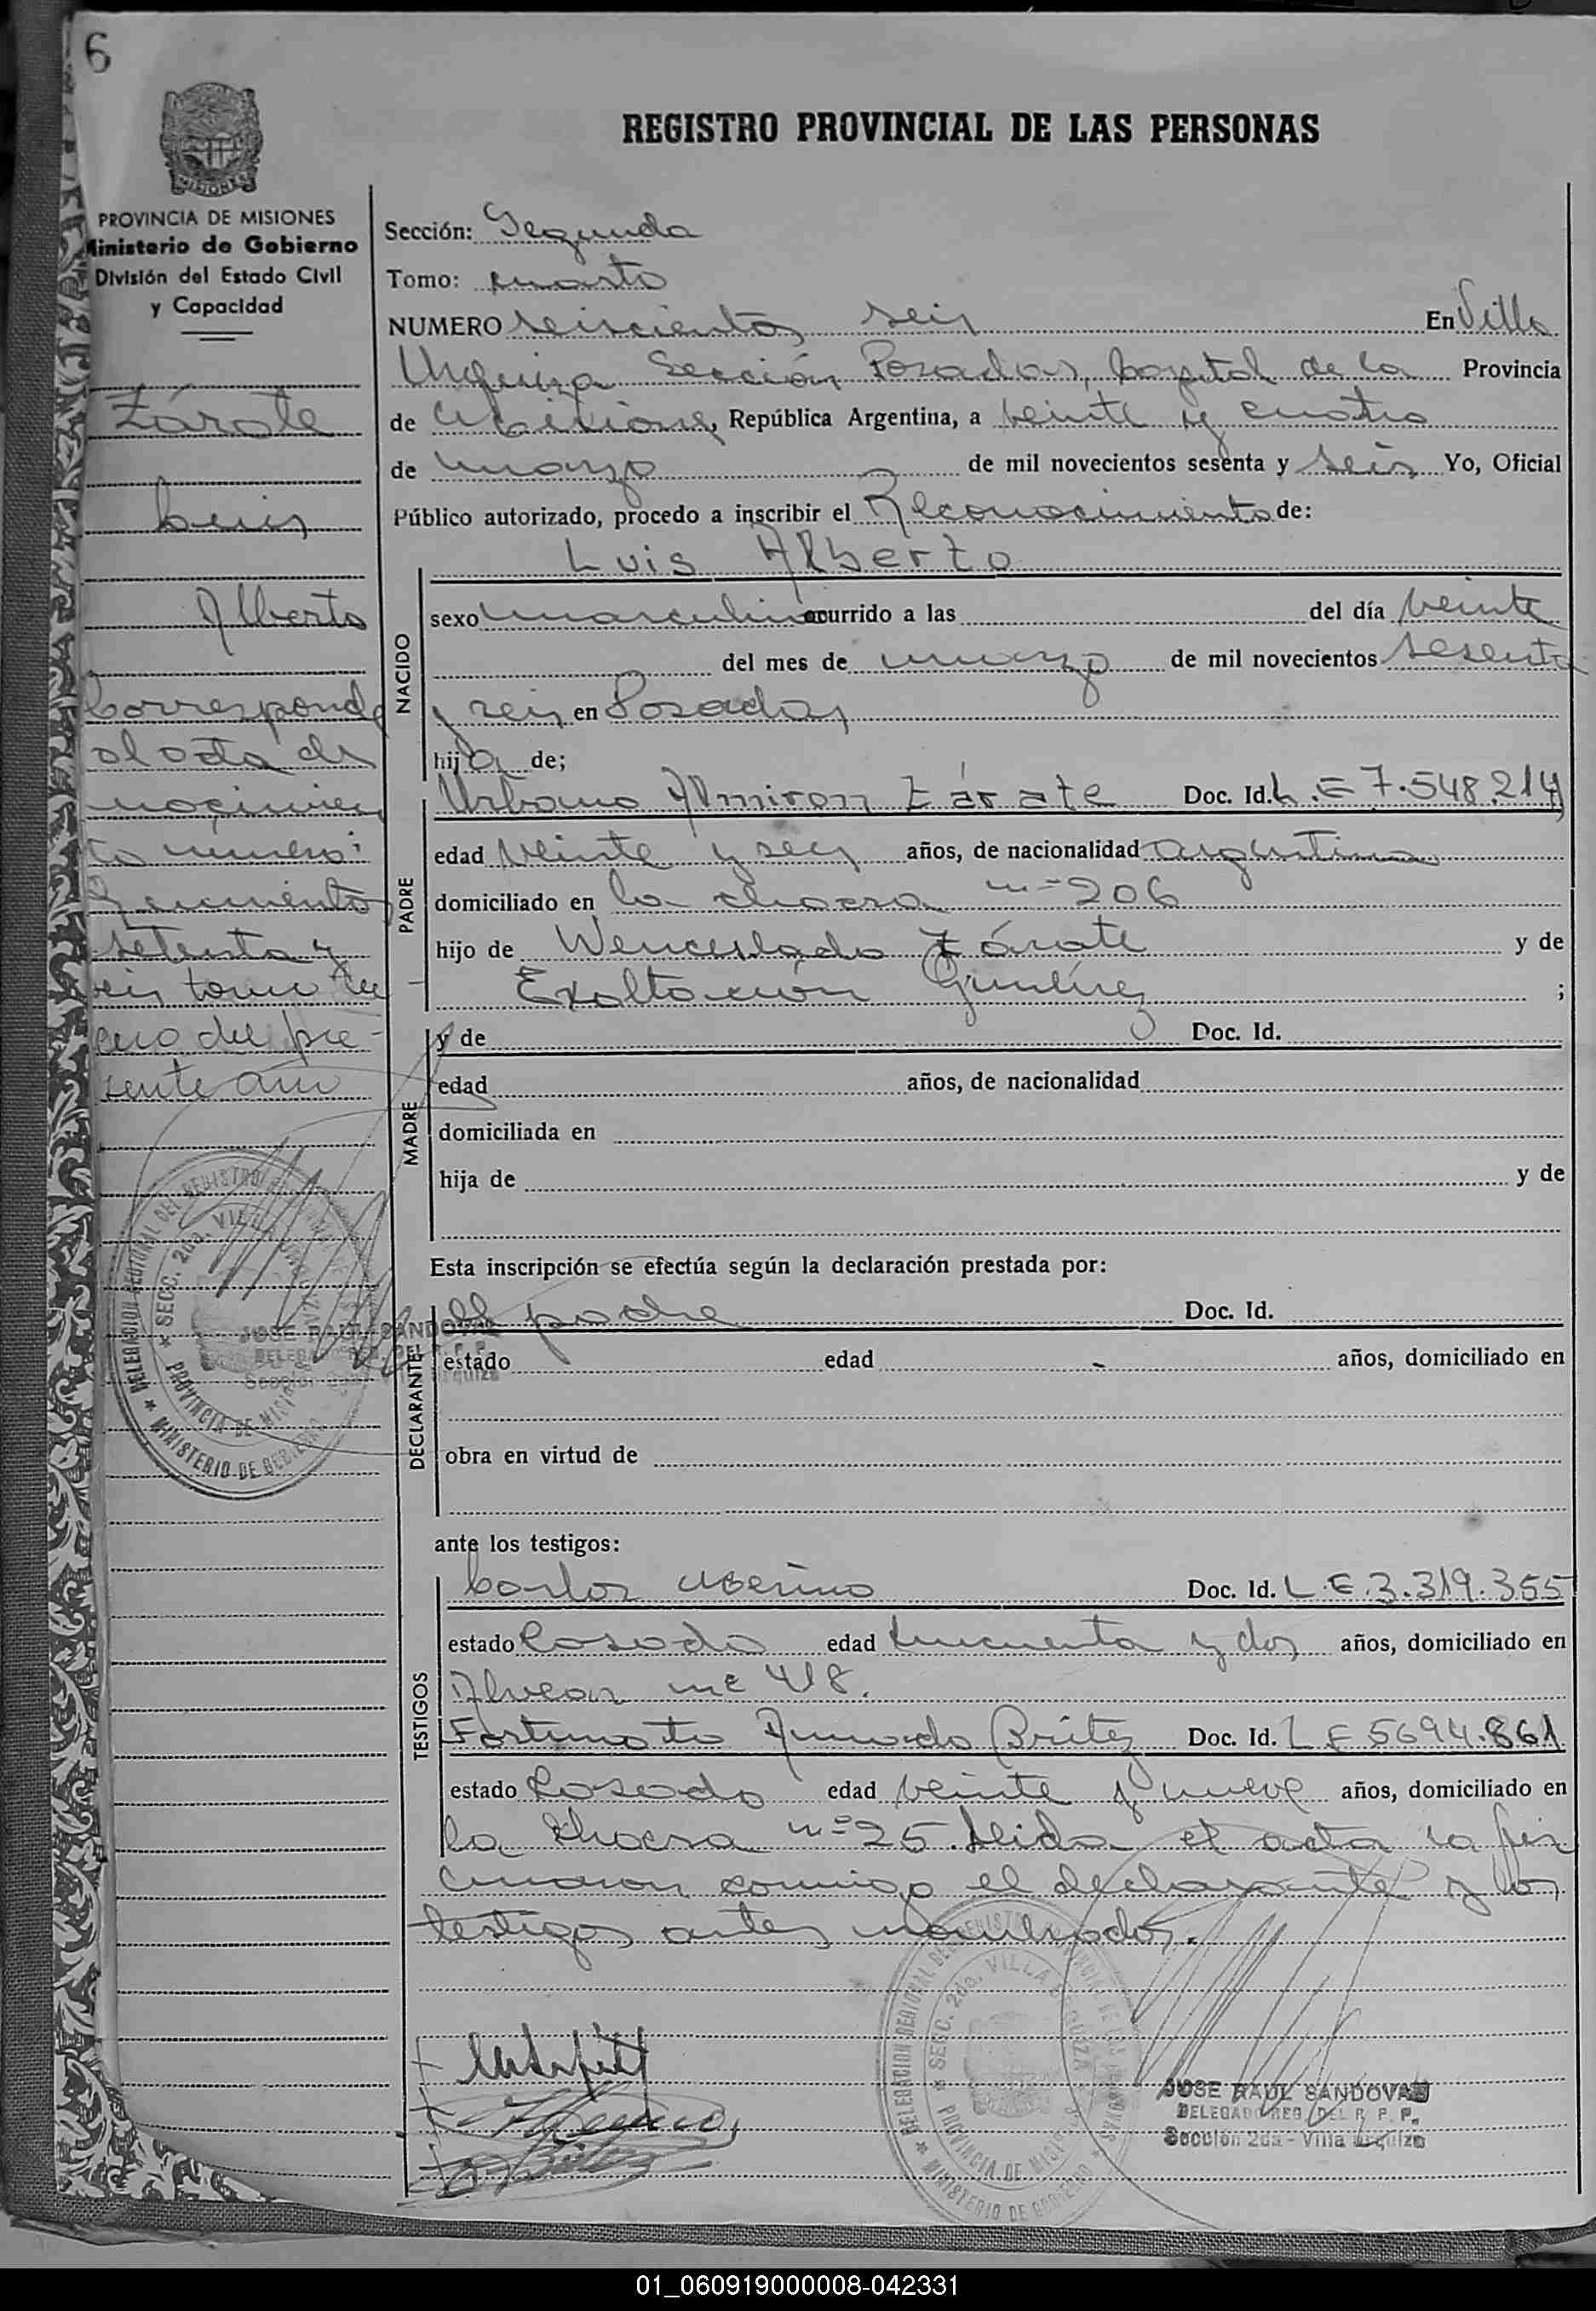 6
REGISTRO PROVINCIAL DE LAS PERSONAS
MISIONES
PROVINCIA DE MISIONES
Ministerio de Gobierno
División del Estado Civil
y Capacidad
Zárate
Luis
Alberto
Corresponde
al acta de
nacimien
to número:
seiscientos
setenta y
seis tomo
del pre-
sente año
Sección: Segunda
Tomo: cuarto
NUMERO seiscientos seis En Villa
Urquiza Sección Posadas, Capital de la Provincia
de Misiones, República Argentina, a veinte y cuatro
de marzo de mil novecientos sesenta y seis Yo, Oficial
Público autorizado, procedo a inscribir el Reconocimiento de:
NACIDO
Luis Alberto
sexo masculino ocurrido a las del día veinte
del mes de marzo de mil novecientos sesenta
y seis en Posadas
hijo de;
PADRE
Urbano Almiron Zárate Doc. Id. L.E 7.548.214
edad veinte y seis años, de nacionalidad argentina
domiciliado en la chacra nº 206
hijo de Wenceslado Zárate y de
Exaltación Giménez ;
MADRE
y de Doc. Id.
edad años, de nacionalidad
domiciliada en
hija de y de
Esta inscripción se efectúa según la declaración prestada por:
DECLARANTE
El padre Doc. Id.
estado edad años, domiciliado en
obra en virtud de
ante los testigos:
TESTIGOS
Carlos Merino Doc. Id. L.E.3.319.355
estado Casado edad cincuenta y dos años, domiciliado en
Alvear nº 418.
Fortunato Amado Britez Doc. Id. L E 5694.861
estado Casado edad veinte y nueve años, domiciliado en
la chacra nº 25. Leida el acta la fir
maron conmigo el declarante y los
testigos antes nombrados.
DELEGACION REGIONAL DEL REGISTRO PROVINCIAL DE LAS PERSONAS
SECC. 2da. VILLA URQUIZA
PROVINCIA DE MISIONES
MINISTERIO DE GOBIERNO
JOSE RAUL SANDOVAL
DELEGADO REG. DEL R. P. P.
Sección 2da - Villa Urquiza
DELEGACION REGIONAL DEL REGISTRO PROVINCIAL DE LAS PERSONAS
SECC. 2da. VILLA URQUIZA
PROVINCIA DE MISIONES
MINISTERIO DE GOBIERNO
JOSE RAUL SANDOVAL
DELEGADO REG. DEL R. P. P.
Sección 2da - Villa Urquiza
01_060919000008-042331